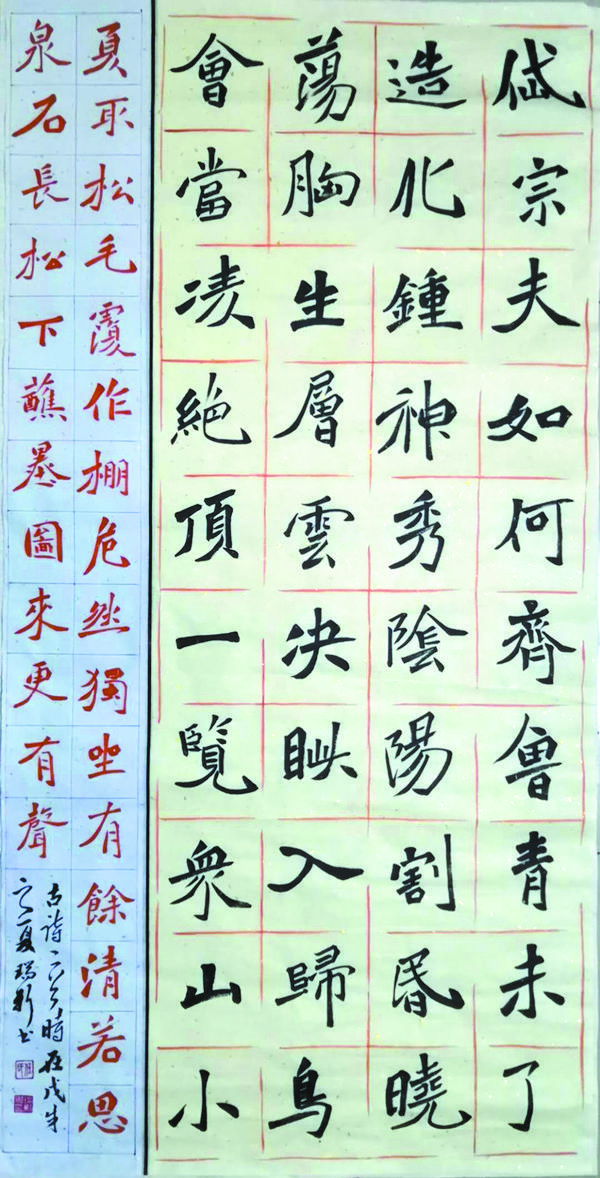 岱宗夫如何齊魯青未了
造化鍾神秀陰陽割昏曉
蕩胸生層雲决眦入歸鳥
會當凌絕頂一覽衆山小
夏取松毛覆作棚危然獨坐有餘清若思
泉石長松下蘸墨圖來更有聲
古詩時在戊年
之夏瑞新書